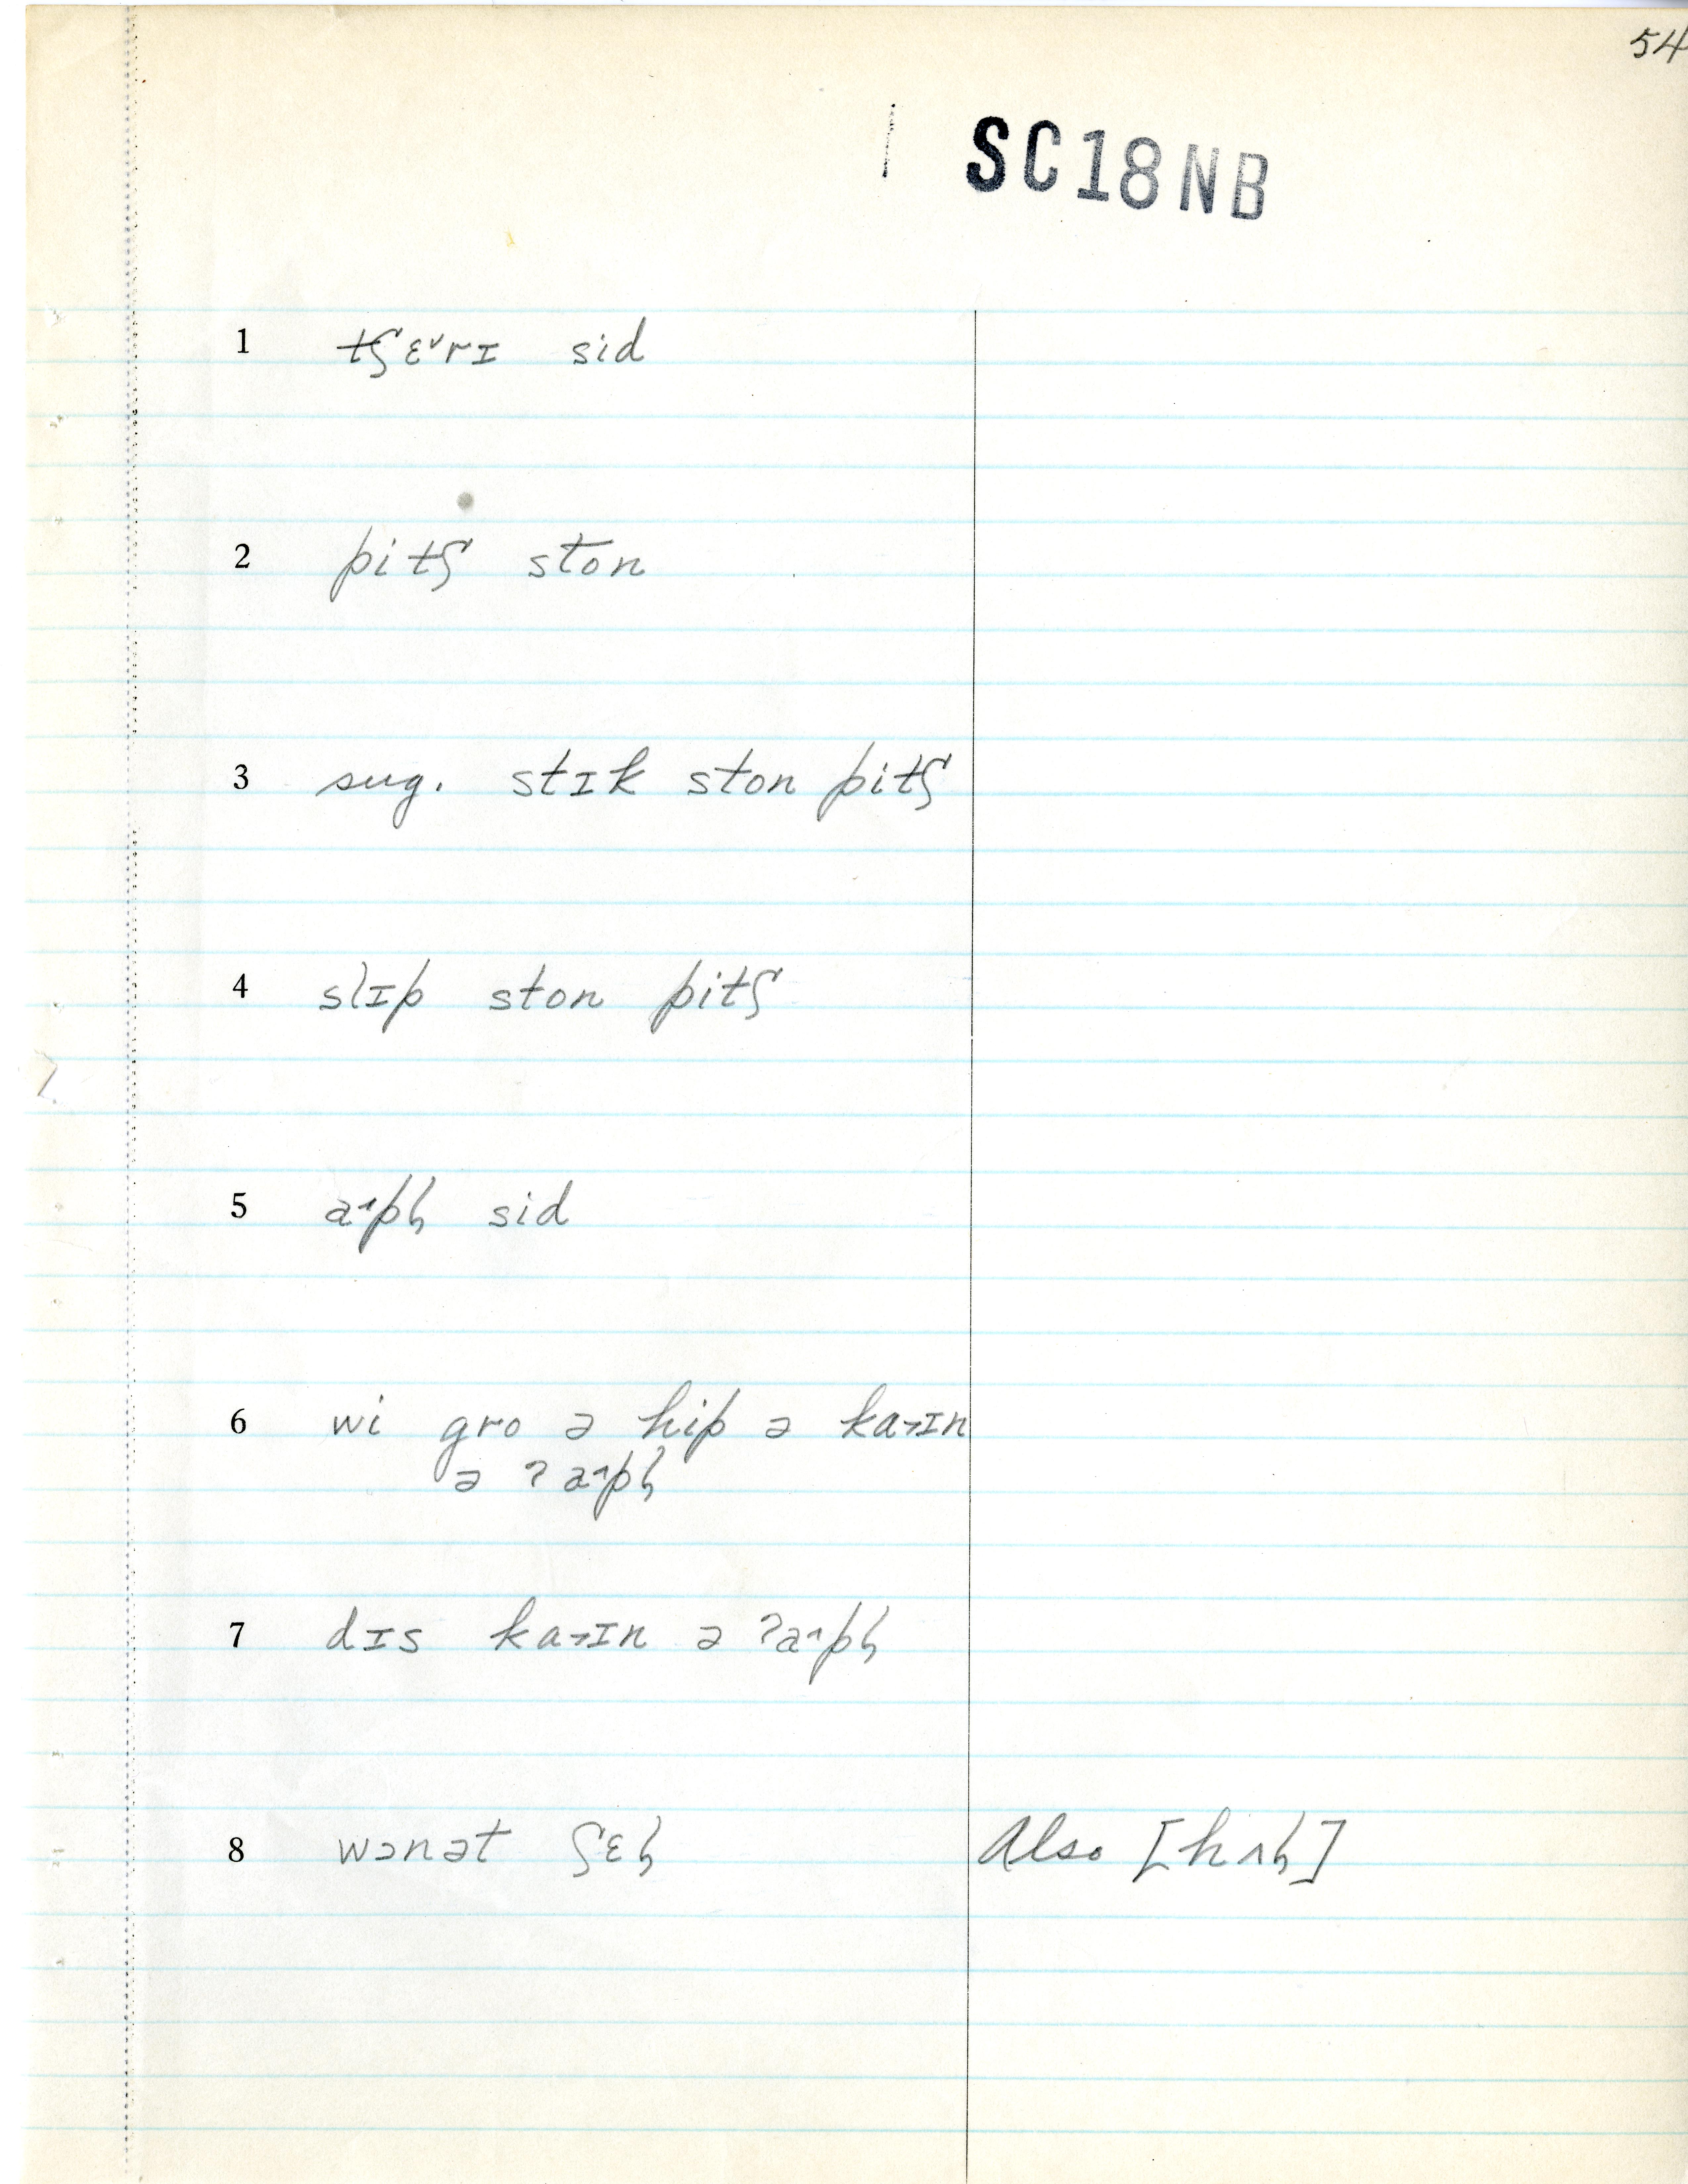 54
SC18NB
1 tʃɛ˅rɪ sid
2 pitʃ ston
3 sug. stɪk ston pitʃ
4 slɪp ston pitʃ
5 a˔pɦ sid
6 wi gro ə hip ə ka˞ɪn
ə ʔa˔pɦ
7 dɪs ka˞ɪn ə ʔa˔pɦ
8 wɔnət ʃɛɦ Also [hʌɦ]